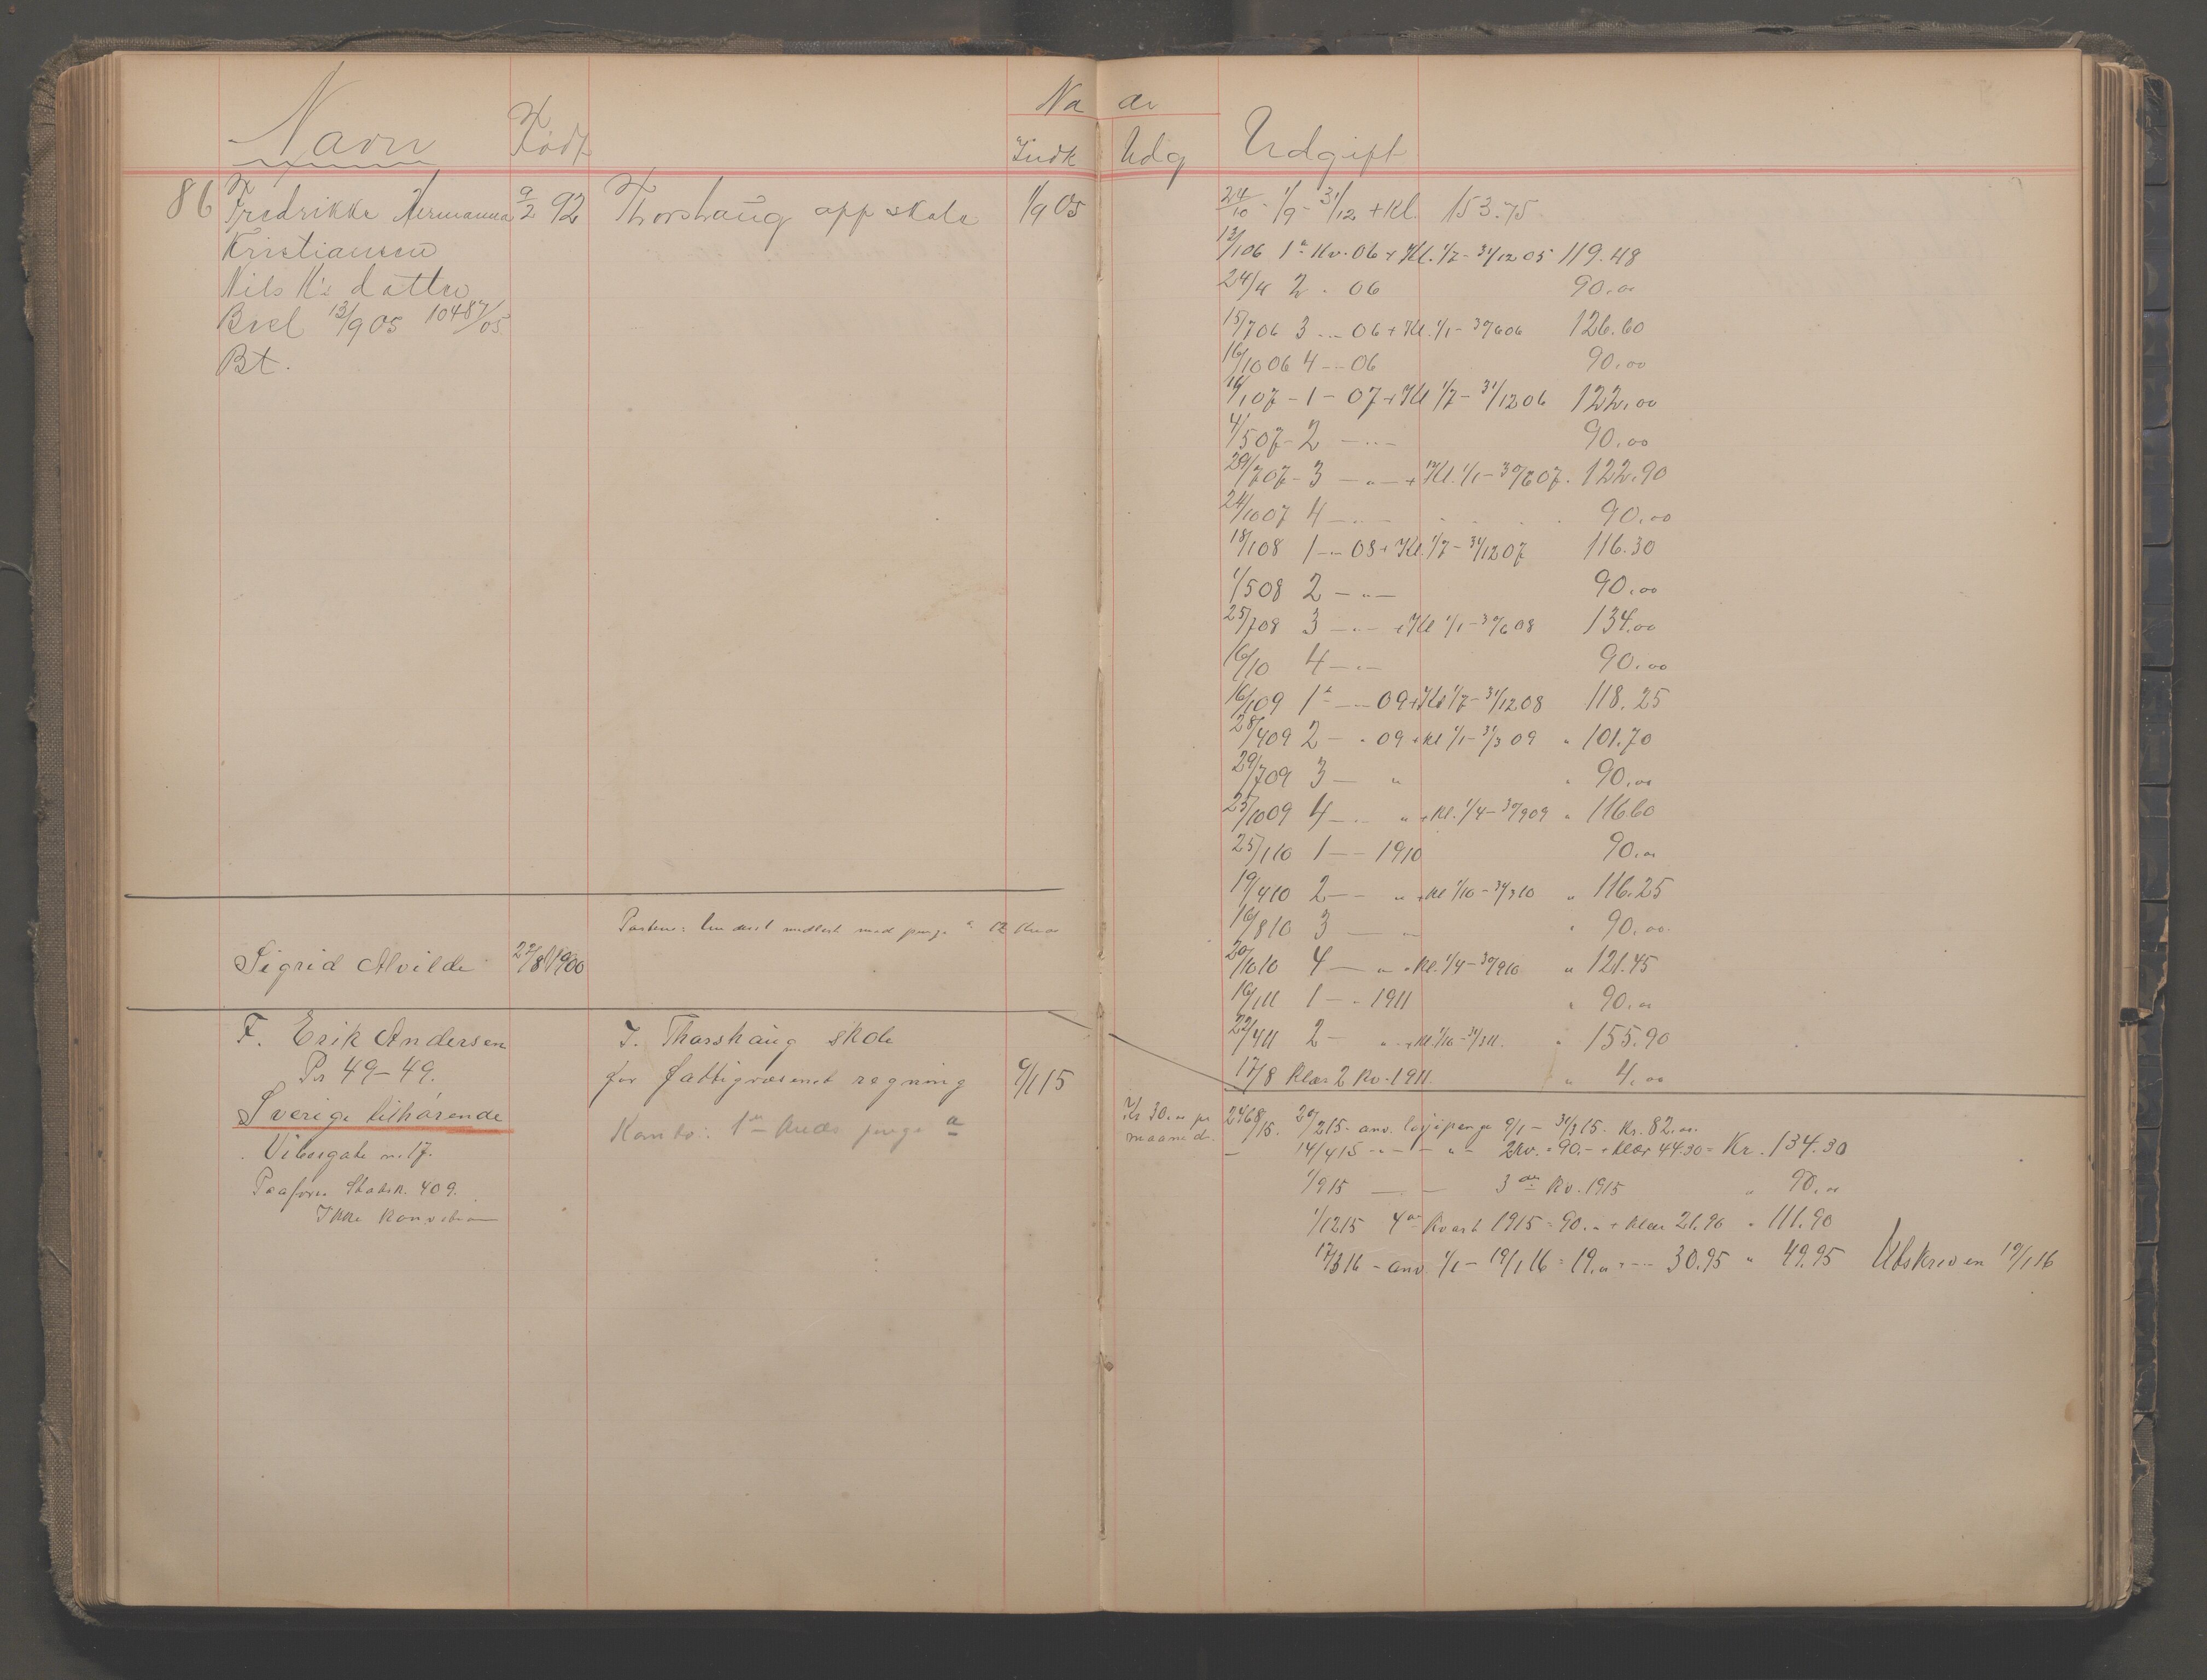 Navn
Født
Na ar
Indk
Udg
Udgift
86
Fredrikke Hermanna
Kristiansen
Nils K's datter
Besl 13/9 05 10487/05.
Bt.
9/2 92
Thorshaug opp skole
1/9 05
24/10 - 1/9 - 31/12 + Kl. 153.75
13/1 06 1ª Kv. 06 + Kl. 1/7 - 31/12 05 119.48
24/4 2 - 06 90.00
15/7 06 3 - 06 + Kl. 1/1 - 30/6 06 126.60
16/10 06 4 - 06 90.00
14/1 07 - 1 - 07 + Kl 1/7 - 31/12 06 122.00
4/5 07 - 2 - " - 90.00
29/7 07 - 3 - " - + Kl. 1/1 - 30/6 07. 122.90
24/10 07 4 - " - 90.00
18/1 08 1 - 08 + Kl. 1/7 - 31/12 07 116.30
1/5 08 2 - " - 90.00
25/7 08 3 - " - + Kl 1/1 - 30/6 08 134.00
16/10 4 - " - 90.00
16/1 09 1ª - 09 + Kl 1/7 - 31/12 08 118.25
28/4 09 2 - " 09 + kl 1/1 - 31/3 09 " 101.70
29/7 09 3 - " " 90.00
25/10 09 4 - " + Kl. 1/4 - 30/9 09 " 116.60
25/1 10 1 - - 1910 90.00
19/4 10 2 - - " + Kl 1/10 - 31/3 10 " 116.25
16/8 10 3 - " " 90.00
20/10 10 4 - " + Kl. 1/4 - 30/9 10 " 121.45
16/1 11 1 - " 1911 " 90.00
22/4 11 2 - " + Kl. 1/10 - 31/3 11. " 155.90
17/8 Klær 2 Kv. 1911. " 4.00
Sigrid Alvilde
22/8 1900
F. Erik Andersen
Pr 49-49.
Sverige tilhørende
Vibesgate n. 17.
409.
Ikke
T. Thorshaug skole
for fattigvæsenet regning
9/1 15
Kr 30.00 pr
maaned.
2468/15. 20/2 15 - anv. 9/1 - 31/3 15. Kr. 82.00
14/4 15 - " - " - 2 Kv. = 90. - + klær 44.30 = Kr. 134.30
1/9 15 - - 3die Kv. 1915 " 90.00
1/12 15 4de Kvart 1915 = 90.00 + klær 21.90 " 111.90
17/3 16 - anv. 1/1 - 19/1 16 = 19.00 + - 30.95 " 49.95 Udskreven 19/1 16